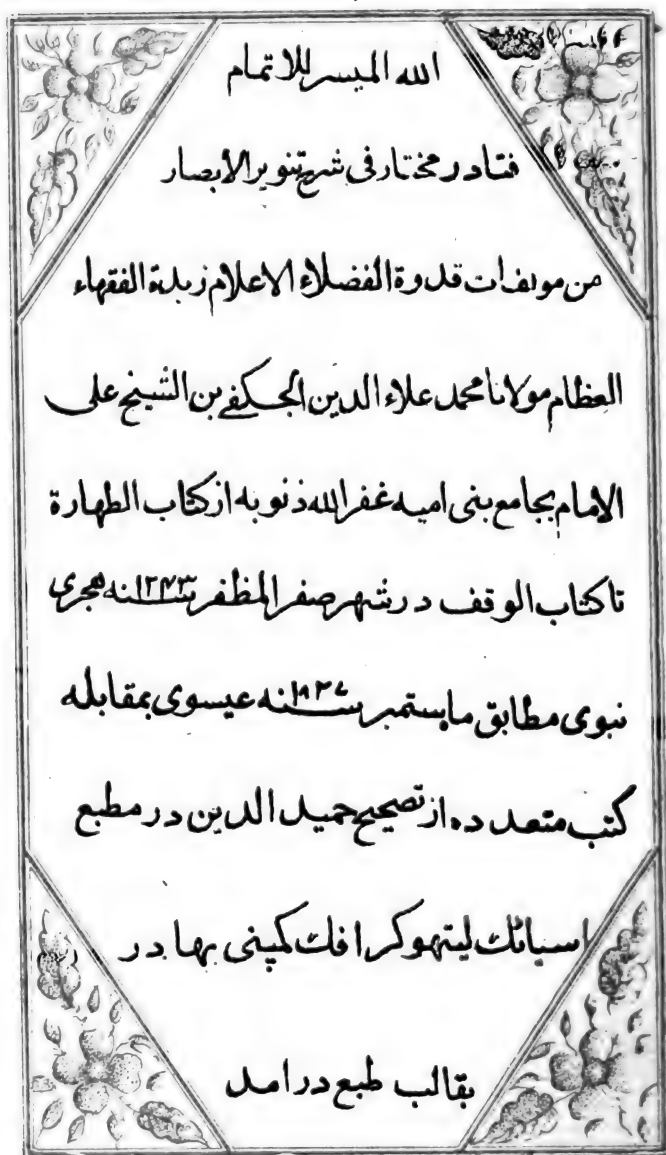 الله الميسر للاتمام
فتادر مختار فی شرح تنویر الابصار
من مولفات قدوة الفضلاء الاعلام زبدة الفقهاء
العظام مولانا محمد علاء الدین الحسکفے بن الشیخ علی
الامام بجامع بنی امیه غفر الله ذنوبه از کتاب الطهارة
تا کتاب الوقف در شهر صفر المظفر سنه ۱۲۴۳ هجری
نبوی مطابق ماه ستمبر سنه ۱۸۲۷ عیسوی بمقابله
کتب متعدده از تصحیح حمید الدین در مطبع
اسیاتک لیتهو کرافک کمپنی بهادر
بقالب طبع درامد